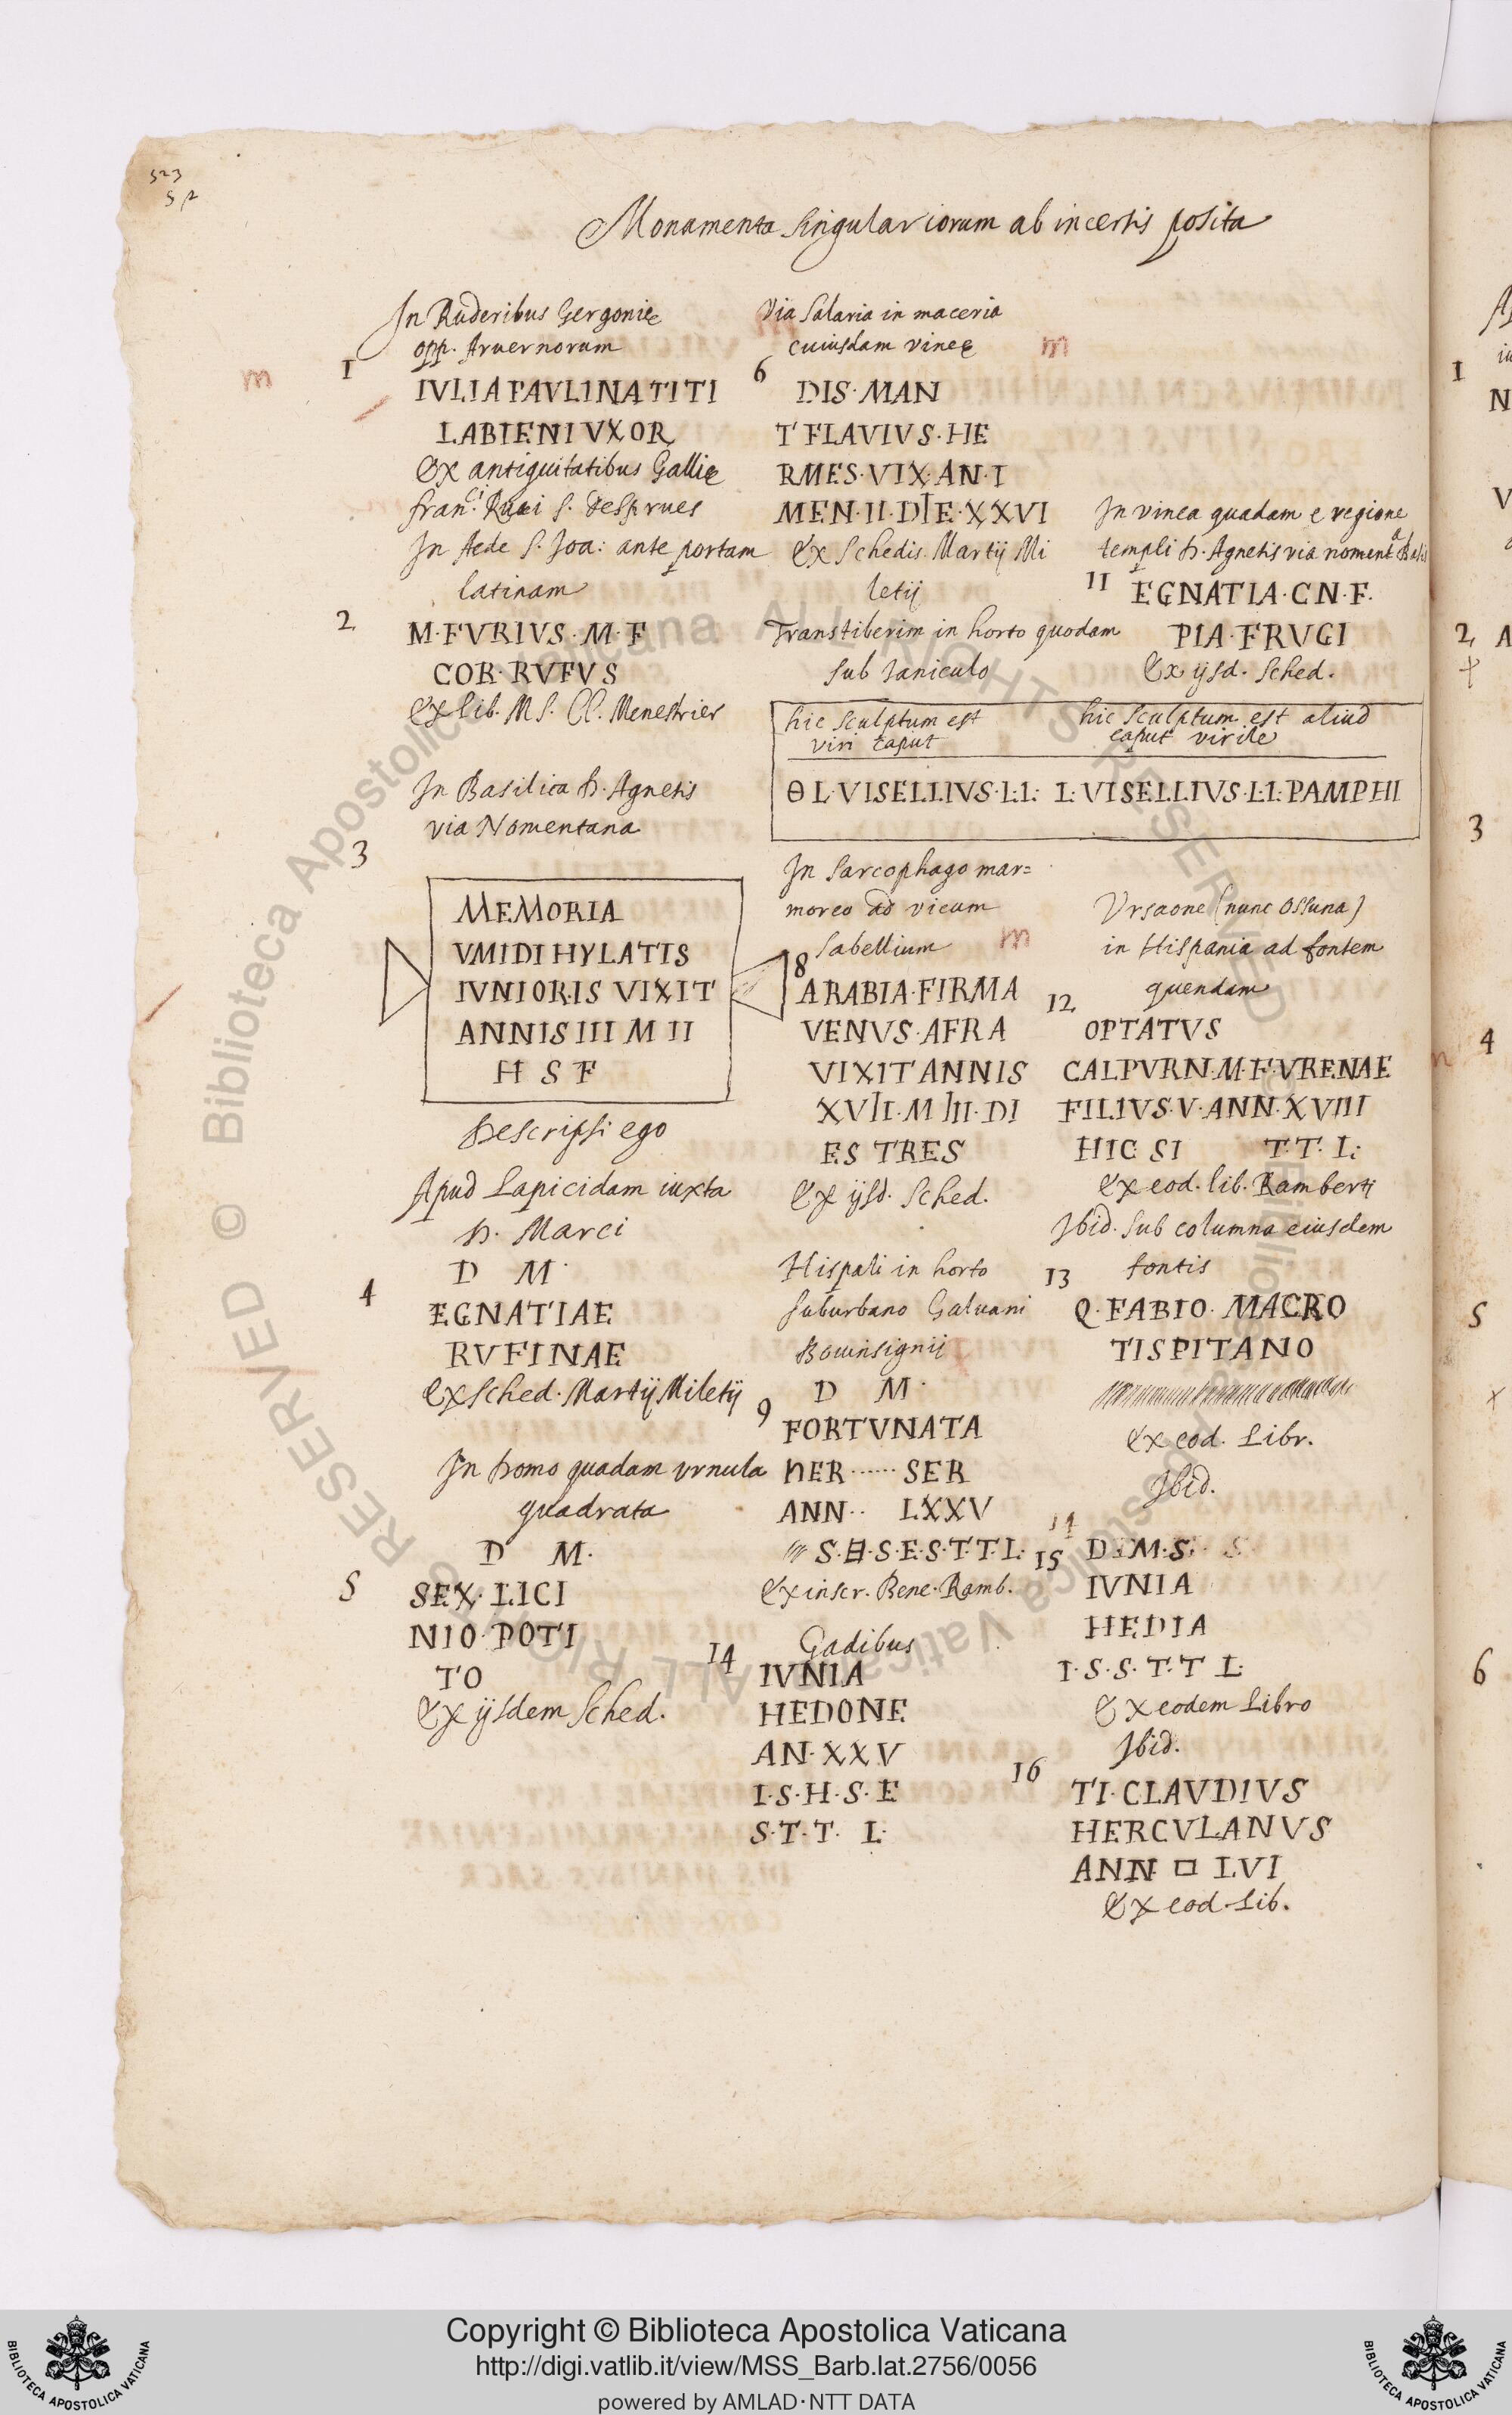 523
52
Monumenta singulariorum ab incertis posita
In Ruderibus Gergoniæ
opp. Arvernorum
m
1
IVLIA PAVLINA TITI
LABIENI VXOR
Ex antiquitatibus Galliæ
In Aede S. Joa: ante portam
latinam
2
M·FVRIVS·M·F
COR·RVFVS
Ex lib. MS. Cl. Menestrier
In Basilica D. Agnetis
via Nomentana
3
MEMORIA
VMIDI HYLATIS
IVNIORIS VIXIT
ANNIS III M II
H S F
Descripsi ego
Apud Lapicidam iuxta
D. Marci
4
D M
EGNATIAE
RVFINAE
Ex Sched. Martij Miletij
In Domo quadam vrnula
quadrata
D M·
5
SEX·LICI
NIO·POTI
TO
Ex ijsdem Sched.
Via Salaria in maceria
cuiusdam vineę
m
6
DIS·MAN
T FLAVIVS·HE
RMES·VIX·AN·I
MEN·II·DIE·XXVI
Ex Schedis Martij Mi
letij
Transtiberim in horto quodam
sub Janiculo
hic sculptum est
viri caput
hic sculptum est aliud
caput virile
Θ L·VISELLIVS·L·L· L·VISELLIVS·L·L·PAMPHI
In sarcophago mar=
moreo ad vicum
Sabellium
m
8
ARABIA·FIRMA
VENVS·AFRA
VIXIT ANNIS
XVII·M III·DI
ES TRES
Ex ijsd. Sched.
Hispali in horto
suburbano Galuani
9
D M·
FORTVNATA
HER······SER
ANN·· LXXV
S·H·S·E·S·T·T·L·
Ex inscr. Bene. Ramb.
Gadibus
14
IVNIA
HEDONE
AN·XXV
I·S·H·S·E
S·T·T· L·
In vinea quadam e regione
templi D. Agnetis via noment
11
EGNATIA·CN·F·
PIA·FRVGI
Ex ijsd. Sched.
Vrsaone (nunc Ossuna)
in Hispania ad fontem
quendam
12
OPTATVS
CALPVRN·M·F·VRENAE
FILIVS·V·ANN·XVIII
HIC SI T·T·L·
Ex eod. lib. Ramberti
Ibid. sub columna eiusdem
fontis
13
Q·FABIO·MACRO
TISPITANO
Ex eod. Libr.
Ibid.
14
15
D·M·S· S
IVNIA
HEDIA
I·S·S·T·T L·
Ex eodem Libro
Ibid.
16
TI·CLAVDIVS
HERCVLANVS
ANN □ LVI
Ex eod. Lib.
1
N
V
2
A
3
4
5
6
© Biblioteca Apostolica Vaticana ALL RIGHTS RESERVED
Copyright © Biblioteca Apostolica Vaticana
http://digi.vatlib.it/view/MSS_Barb.lat.2756/0056
powered by AMLAD·NTT DATA
BIBLIOTECA APOSTOLICA VATICANA
BIBLIOTECA APOSTOLICA VATICANA